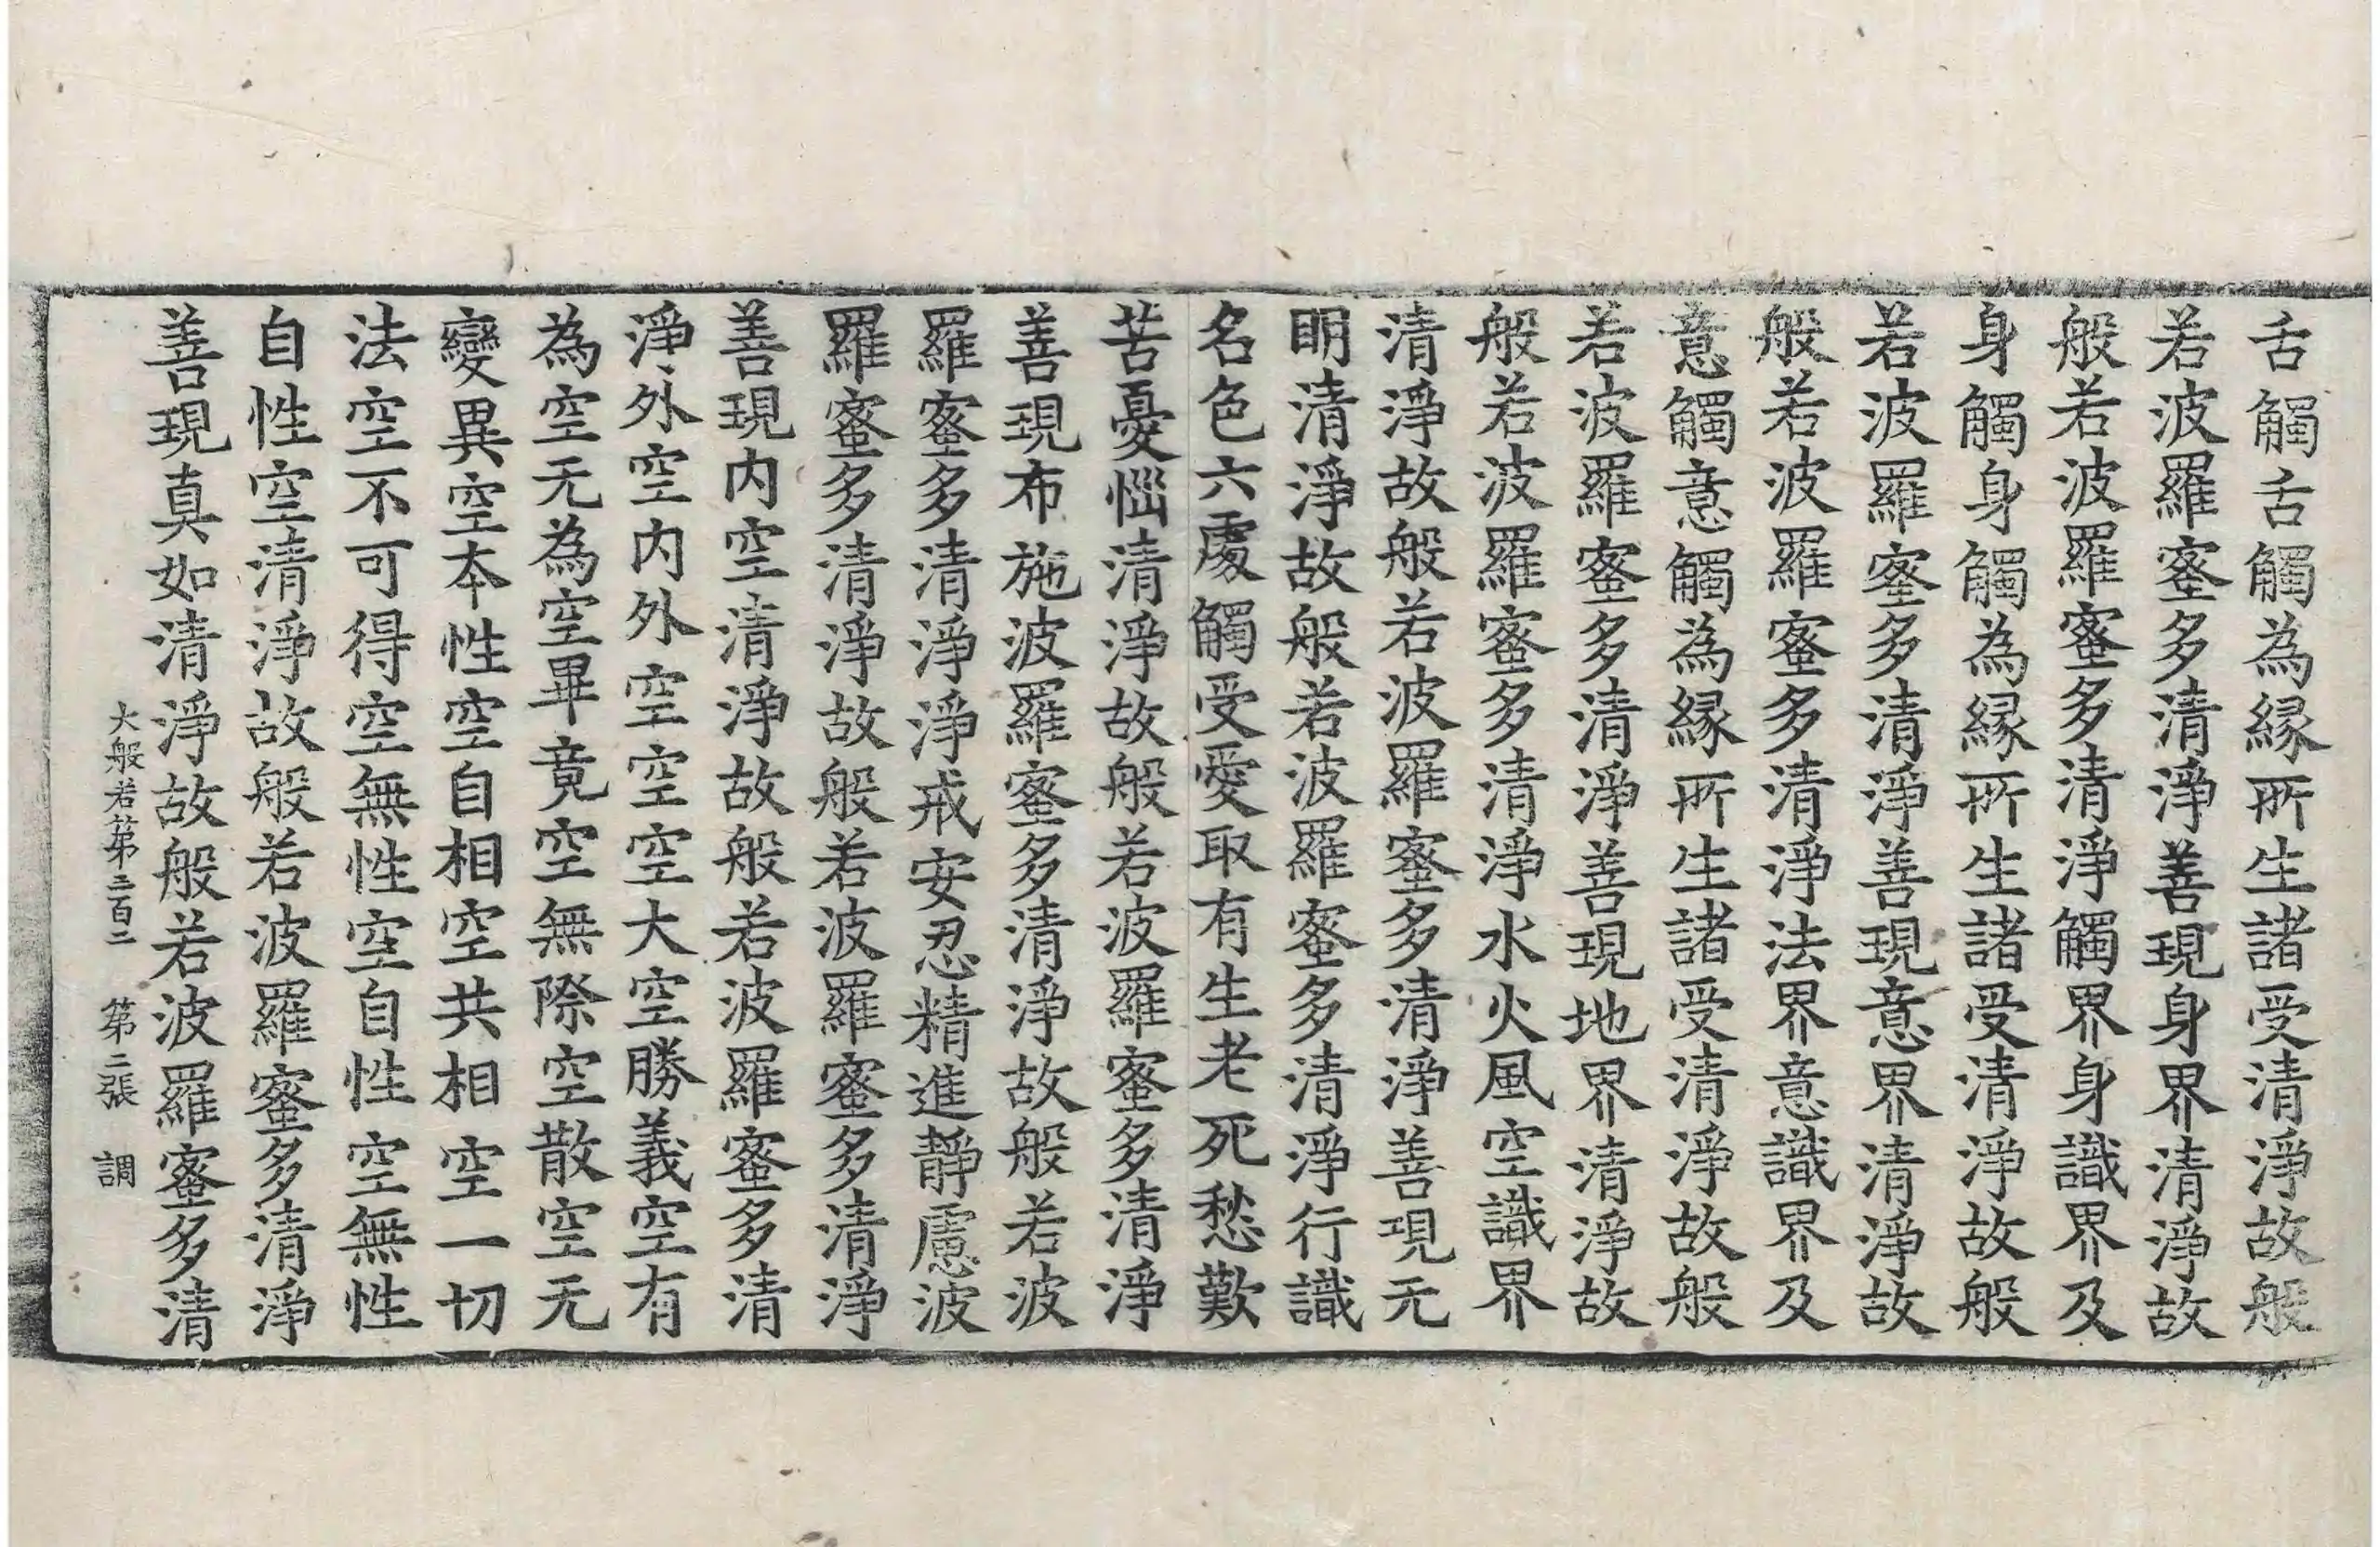 舌觸舌觸為縁所生諸受清淨故般
若波羅蜜多清淨善現身界清淨故
般若波羅蜜多清淨觸界身識界及
身觸身觸為縁所生諸受清淨故般
若波羅蜜多清淨善現意界清淨故
般若波羅蜜多清淨法界意識界及
意觸意觸為縁所生諸受清淨故般
若波羅蜜多清淨善現地界清淨故
般若波羅蜜多清淨水火風空識界
清淨故般若波羅蜜多清淨善現无
明清淨故般若波羅蜜多清淨行識
名色六處觸受愛取有生老死愁歎
苦憂惱清淨故般若波羅蜜多清淨
善現布施波羅蜜多清淨故般若波
羅蜜多清淨淨戒安忍精進靜慮波
羅蜜多清淨故般若波羅蜜多清淨
善現内空清淨故般若波羅蜜多清
淨外空内外空空空大空勝義空有
為空无為空畢竟空無際空散空无
變異空本性空自相空共相空一切
法空不可得空無性空自性空無性
自性空清淨故般若波羅蜜多清淨
善現真如清淨故般若波羅蜜多清
大般若第三百二 第二張 調